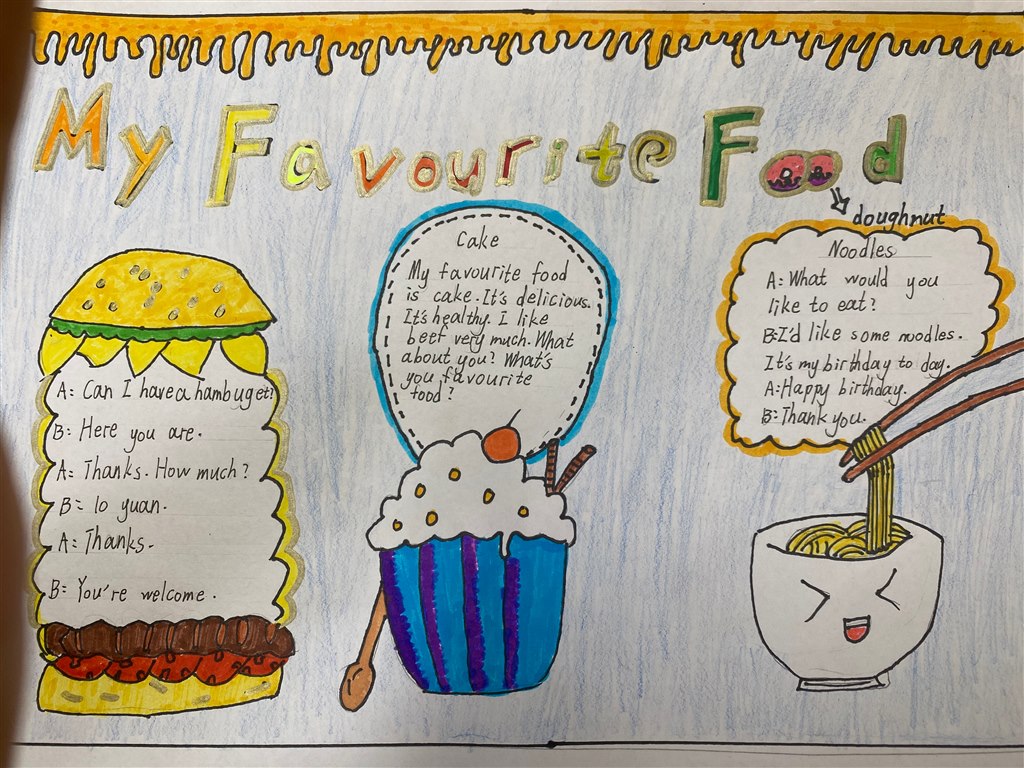 My Favourite Food
doughnut
A: Can I have a hambuget?
B: Here you are.
A: Thanks. How much?
B: 10 yuan.
A: Thanks.
B: You're welcome.
Cake
My favourite food
is cake. It's delicious.
It's healthy. I like
beef very much. What
about you? What's
you favourite
food?
Noodles
A: What would you
like to eat?
B: I'd like some noodles.
It's my birthday to day.
A: Happy birthday.
B: Thank you.